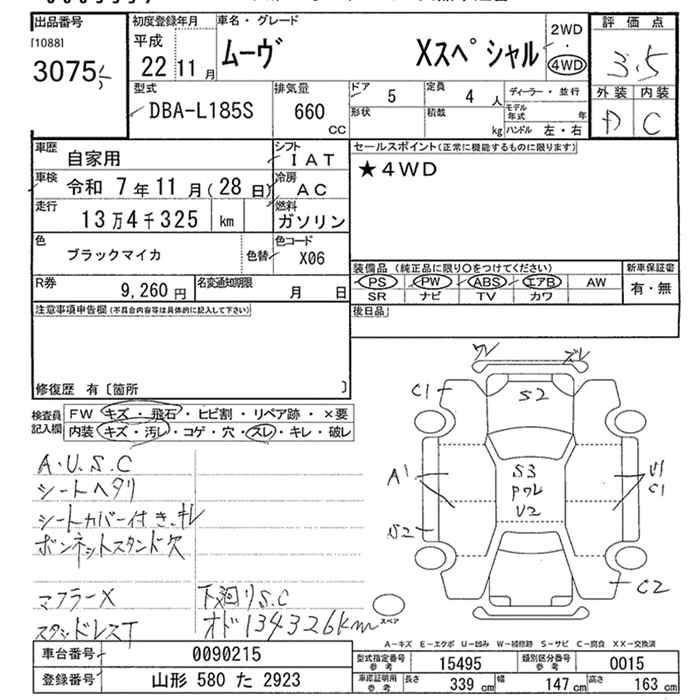 出品番号
[1088]
3075
初度登録年月
平成
22 11 月
車名・グレード
ムーヴ Xスペシャル
2WD
・
4WD
評価点
3.5
外装 内装
D C
型式
DBA-L185S
排気量
660 CC
ドア 5
定員 4 人
形状
積載 kg
ディーラー・並行
モデル年式 年
ハンドル 左・右
車歴 自家用
シフト IAT
車検 令和 7年11月(28日)
冷房 AC
走行 13万4千325 km
燃料 ガソリン
色 ブラックマイカ
色替
色コード X06
R券 9,260円
名変通知期限 月 日
セールスポイント(正常に機能するものに限ります)
★4WD
装備品 (純正品に限り○をつけてください)
PS PW ABS エアB AW
SR ナビ TV カワ
新車保証書
有・無
注意事項申告欄(不具合内容等は具体的に記入して下さい)
後日品
修復歴 有〔箇所 〕
検査員記入欄
FW キズ・飛石・ヒビ割・リペア跡・×要
内装 キズ・汚レ・コゲ・穴・スレ・キレ・破レ
A.U.S.C
シートヘタリ
シートカバー付き、キレ
ボンネットスタンド欠
マフラーX
スタッドレスT
下廻りS.C
オド134326km
ワレ ズレ
C1 S2
A1 S3 U1
PワレC1
S2 U2
C2
スペア
A-キズ E-エクボ U-凹み W-補修跡 S-サビ C-腐食 XX-交換済
車台番号 0090215
登録番号 山形 580 た 2923
型式指定番号 参考 15495
類別区分番号 参考 0015
車庫証明用 参考 長さ 339 cm 幅 147 cm 高さ 163 cm